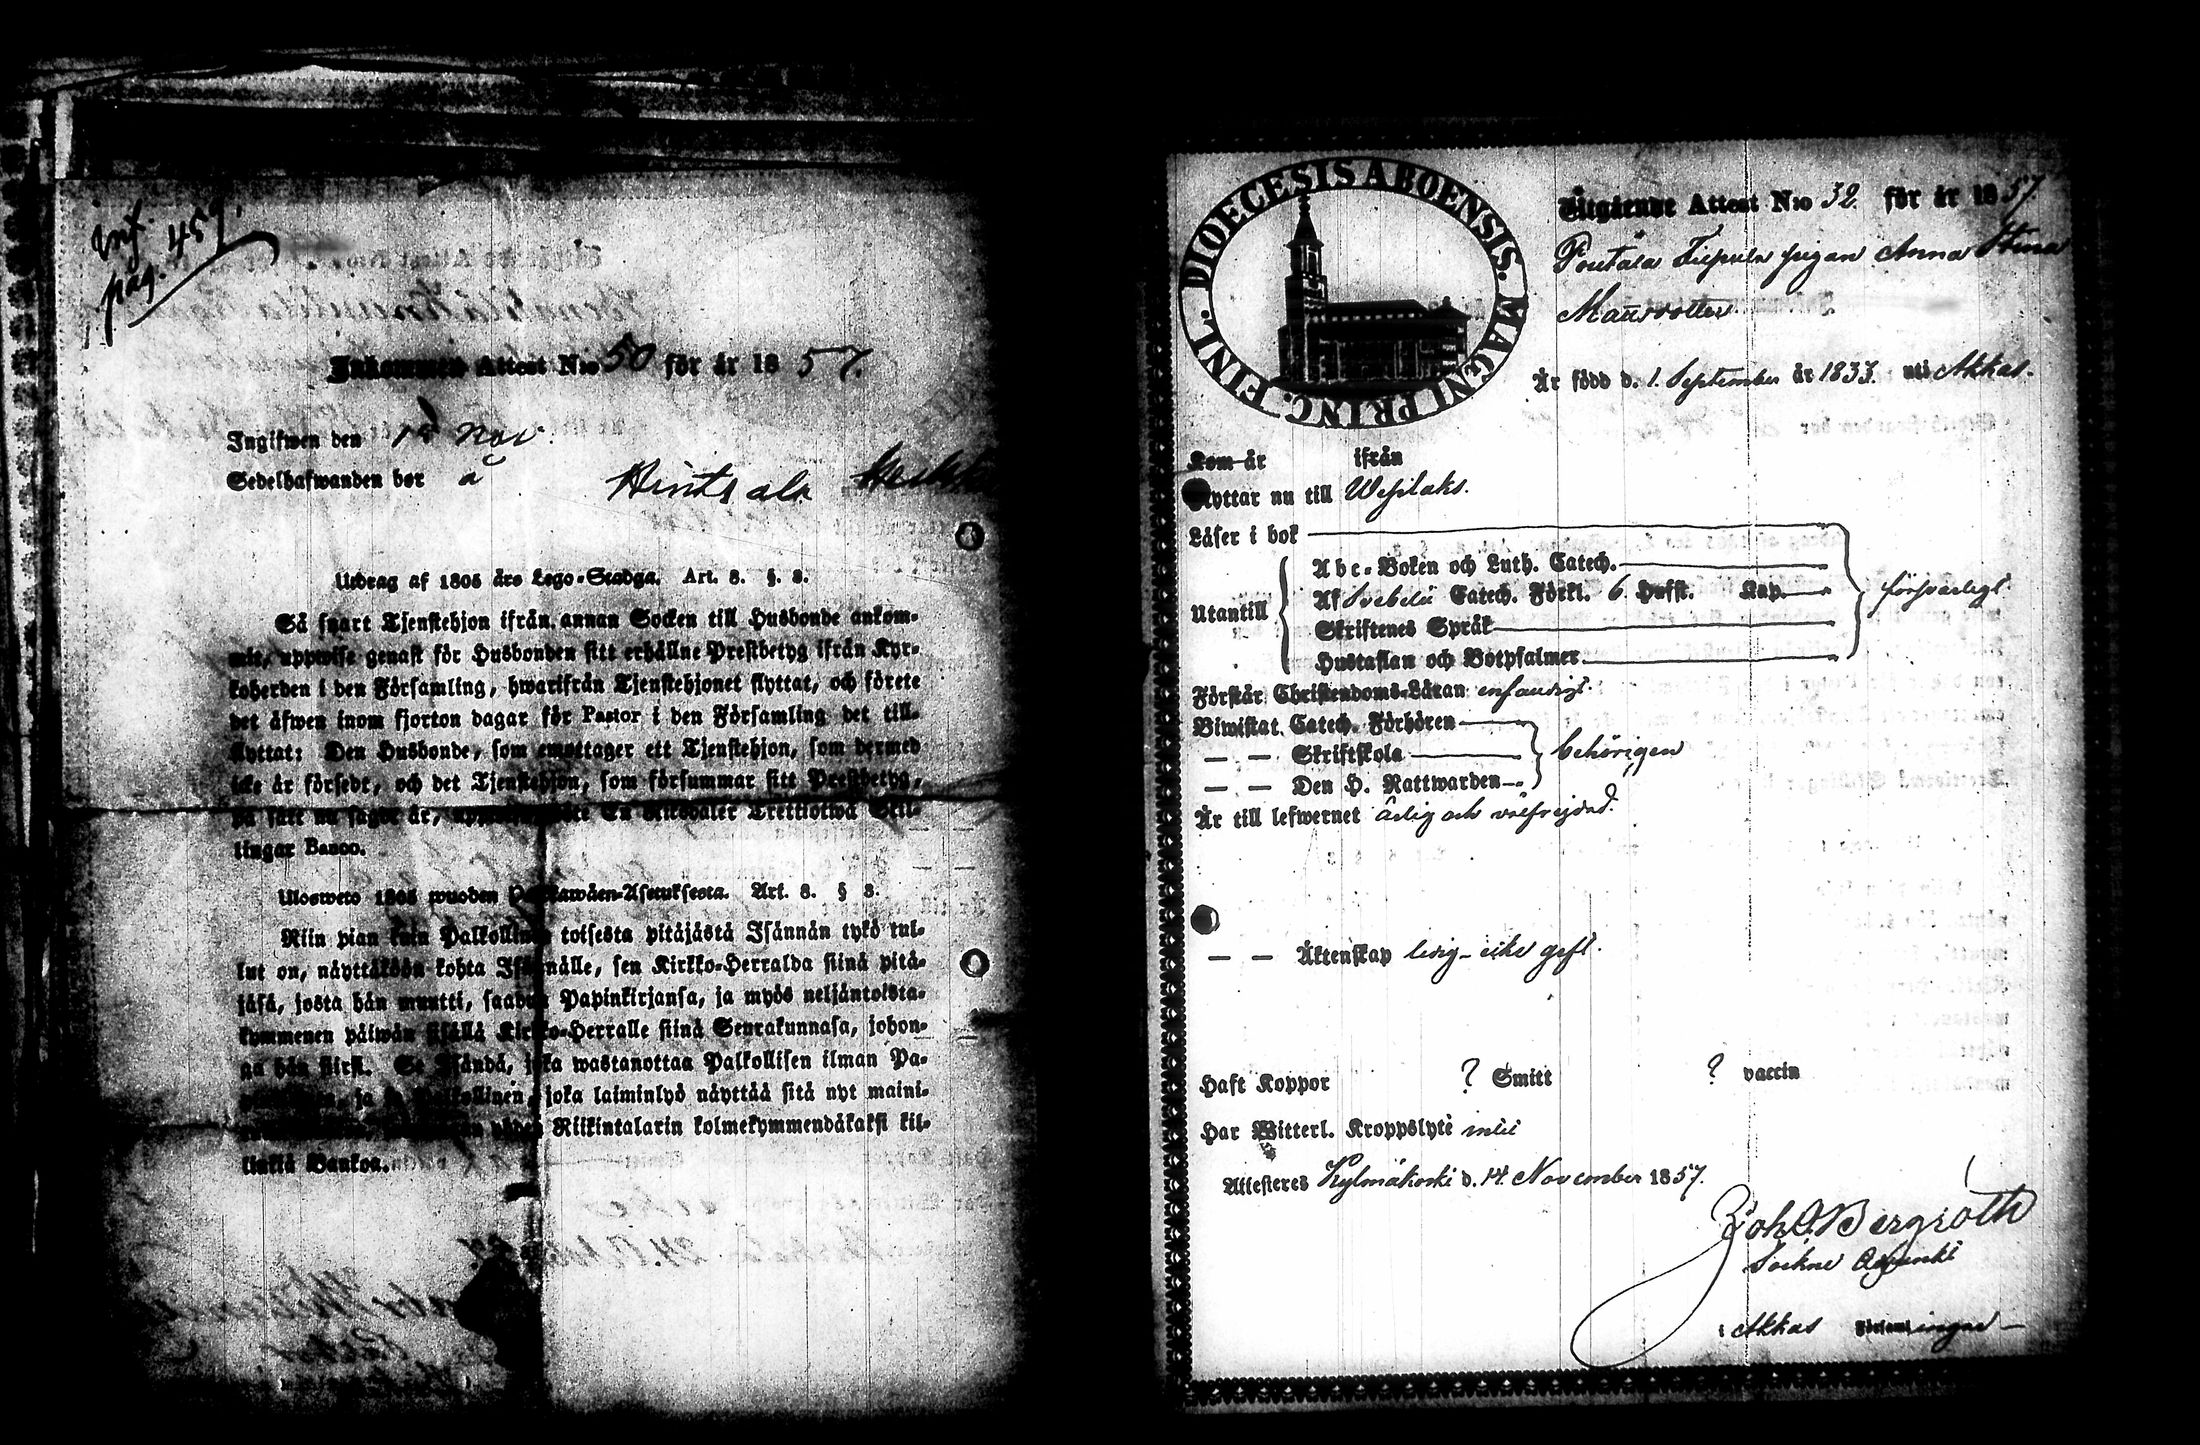 inf.
pag. 459.
Inkommen Attest N:o 50 för år 1857.
Ingifwen den 15 Nov.
Sedelhafwanden bor å Hintsala
Utdrag af 1805 års Lego-Stadga. Art. 8. §. 8.
Så snart Tjenstehjon ifrån annan Socken till Husbonde ankom-
mit, uppwise genast för Husbonden sitt erhållne Prestbetyg ifrån Kyr-
koherden i den Församling, hwarifrån Tjenstehjonet flyttat, och förete
det äfwen inom fjorton dagar för Pastor i den Församling det till-
flyttat: Den Husbonde, som emottager ett Tjenstehjon, som dermed
icke är försedt, och det Tjenstehjon, som försummar sitt Prestbetyg,
på sätt nu sagdt är, En Riksdaler Trettiotwå Skil-
lingar Banco.
Ulosweto 1805 wuoden Art. 8. § 8.
Niin pian kuin Palkollinen toisesta pitäjästä Isännän tykö tul-
lut on, näyttäköön kohta Isännälle, sen Kirkko-Herralda siinä pitä-
jäsä, josta hän muutti, saadun Papinkirjansa, ja myös neljäntoista-
kymmenen päiwän sisällä Kirkko-Herralle siinä Seurakunnasa, johon-
ga hän siirsi. Se Isändä, joka wastanottaa Palkollisen ilman Pa-
ja se Palkollinen, joka laiminlyö näyttää sitä nyt maini-
Riikintalarin kolmekymmendäkaksi kil-
linkiä Bankoa.
FINL. DIOECESIS ABOENSIS. MAGNI PRINC.
Utgående Attest N:o 32 för år 1857.
pigan Anna Stina
Matsdotter
Är född d. 1. September år 1833. uti Akkas.
Kom år ifrån
Flyttar nu till Wesilaks.
Läser i bok
Utantill
Abc-Boken och Luth. Catech.
Af Svebelii Catech. Förkl. 6. Hufst. Kap.
Skriftenes Språk
Hustaflan och Botpsalmer
försvarligt
Förstår Christendoms-Läran enfaldigt.
Biwistat Catech. Förhören
— — Skriftskola
— — Den H. Nattwarden
behörigen
Är till lefwernet ärlig och välfrejdad.
— — Äktenskap ledig – icke gift.
Haft Koppor ? Smitt ? vaccin
Har Witterl. Kroppslyte intet
Attesteres Kylmäkoski d. 14. November 1857.
Joh. O. Bergroth
Sockne Adjunkt
i Akkas Församlingar